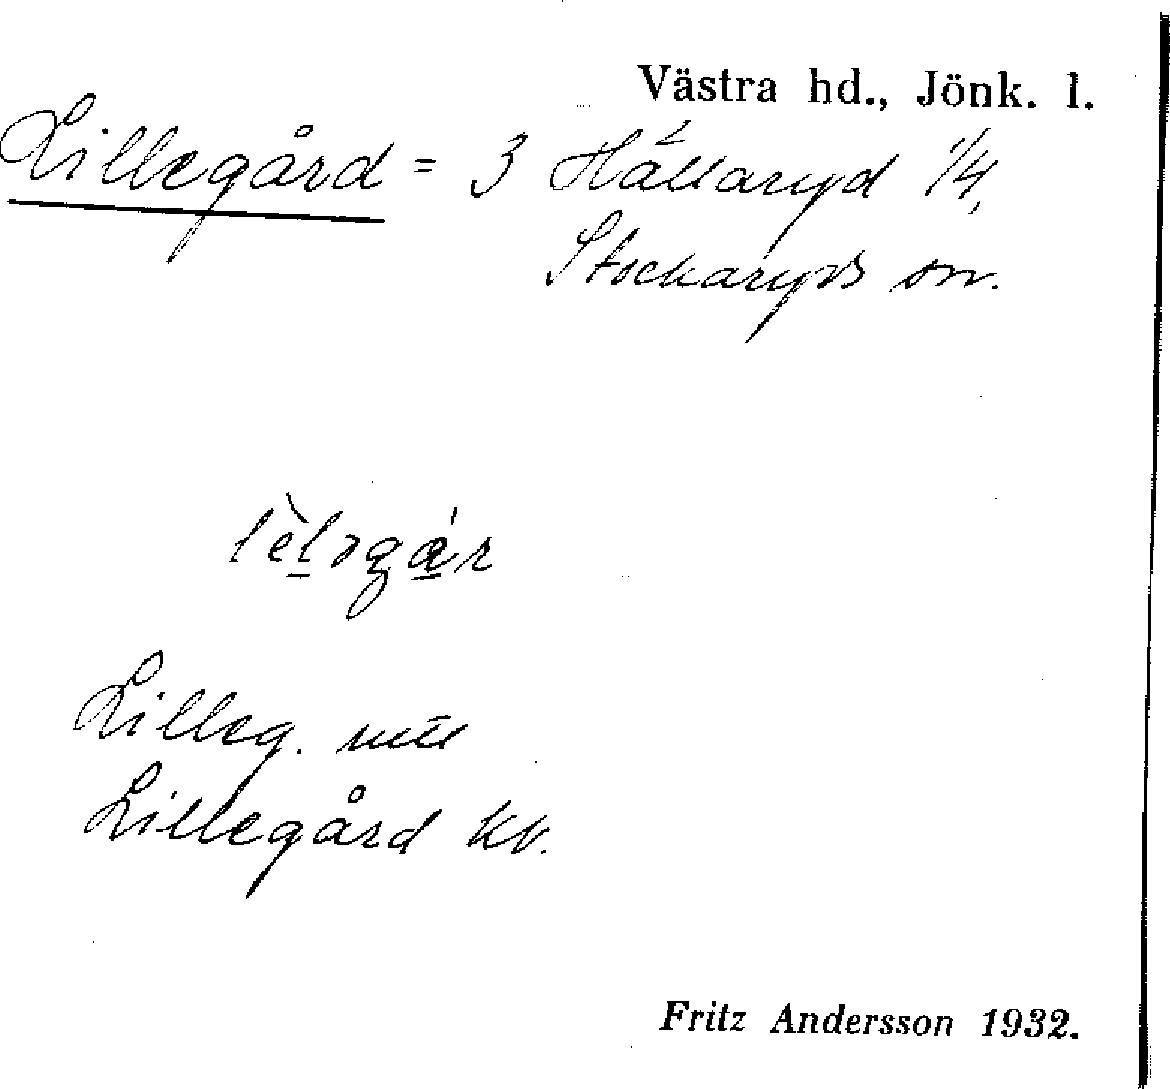 Västra hd., Jönk. l.
Lillegård = 3 Hållaryd 1/4,
Stockaryds sn.
Lilleg.
Lillegård kv.
Fritz Andersson 1932.